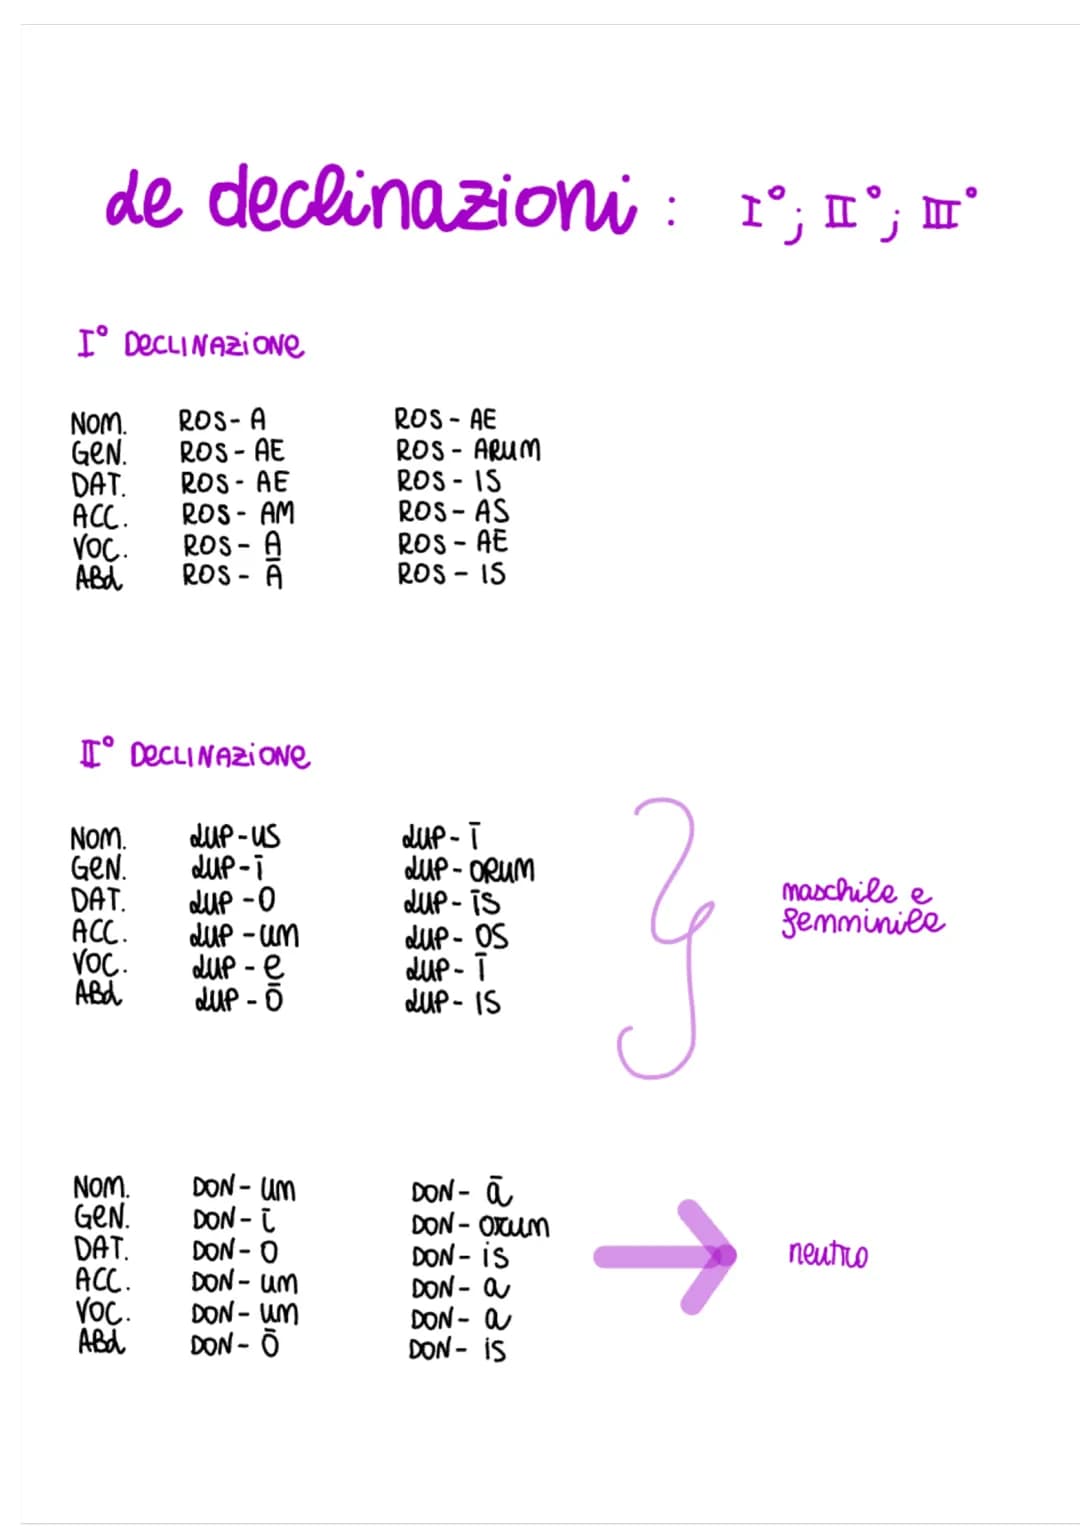 Le declinazioni : I°; II°; III°
I° DECLINAZIONE
NOM. ROS-A ROS-AE
GEN. ROS-AE ROS-ARUM
DAT. ROS-AE ROS-IS
ACC. ROS-AM ROS-AS
VOC. ROS-A ROS-AE
ABL ROS-Ā ROS-IS
II° DECLINAZIONE
NOM. LUP-US LUP-Ī
GEN. LUP-Ī LUP-ORUM
DAT. LUP-O LUP-ĪS
ACC. LUP-UM LUP-OS
VOC. LUP-E LUP-Ī
ABL LUP-Ō LUP-IS
maschile e
femminile
NOM. DON-UM DON-Ā
GEN. DON-Ī DON-ORUM
DAT. DON-O DON-IS
ACC. DON-UM DON-A
VOC. DON-UM DON-A
ABL DON-Ō DON-IS
neutro